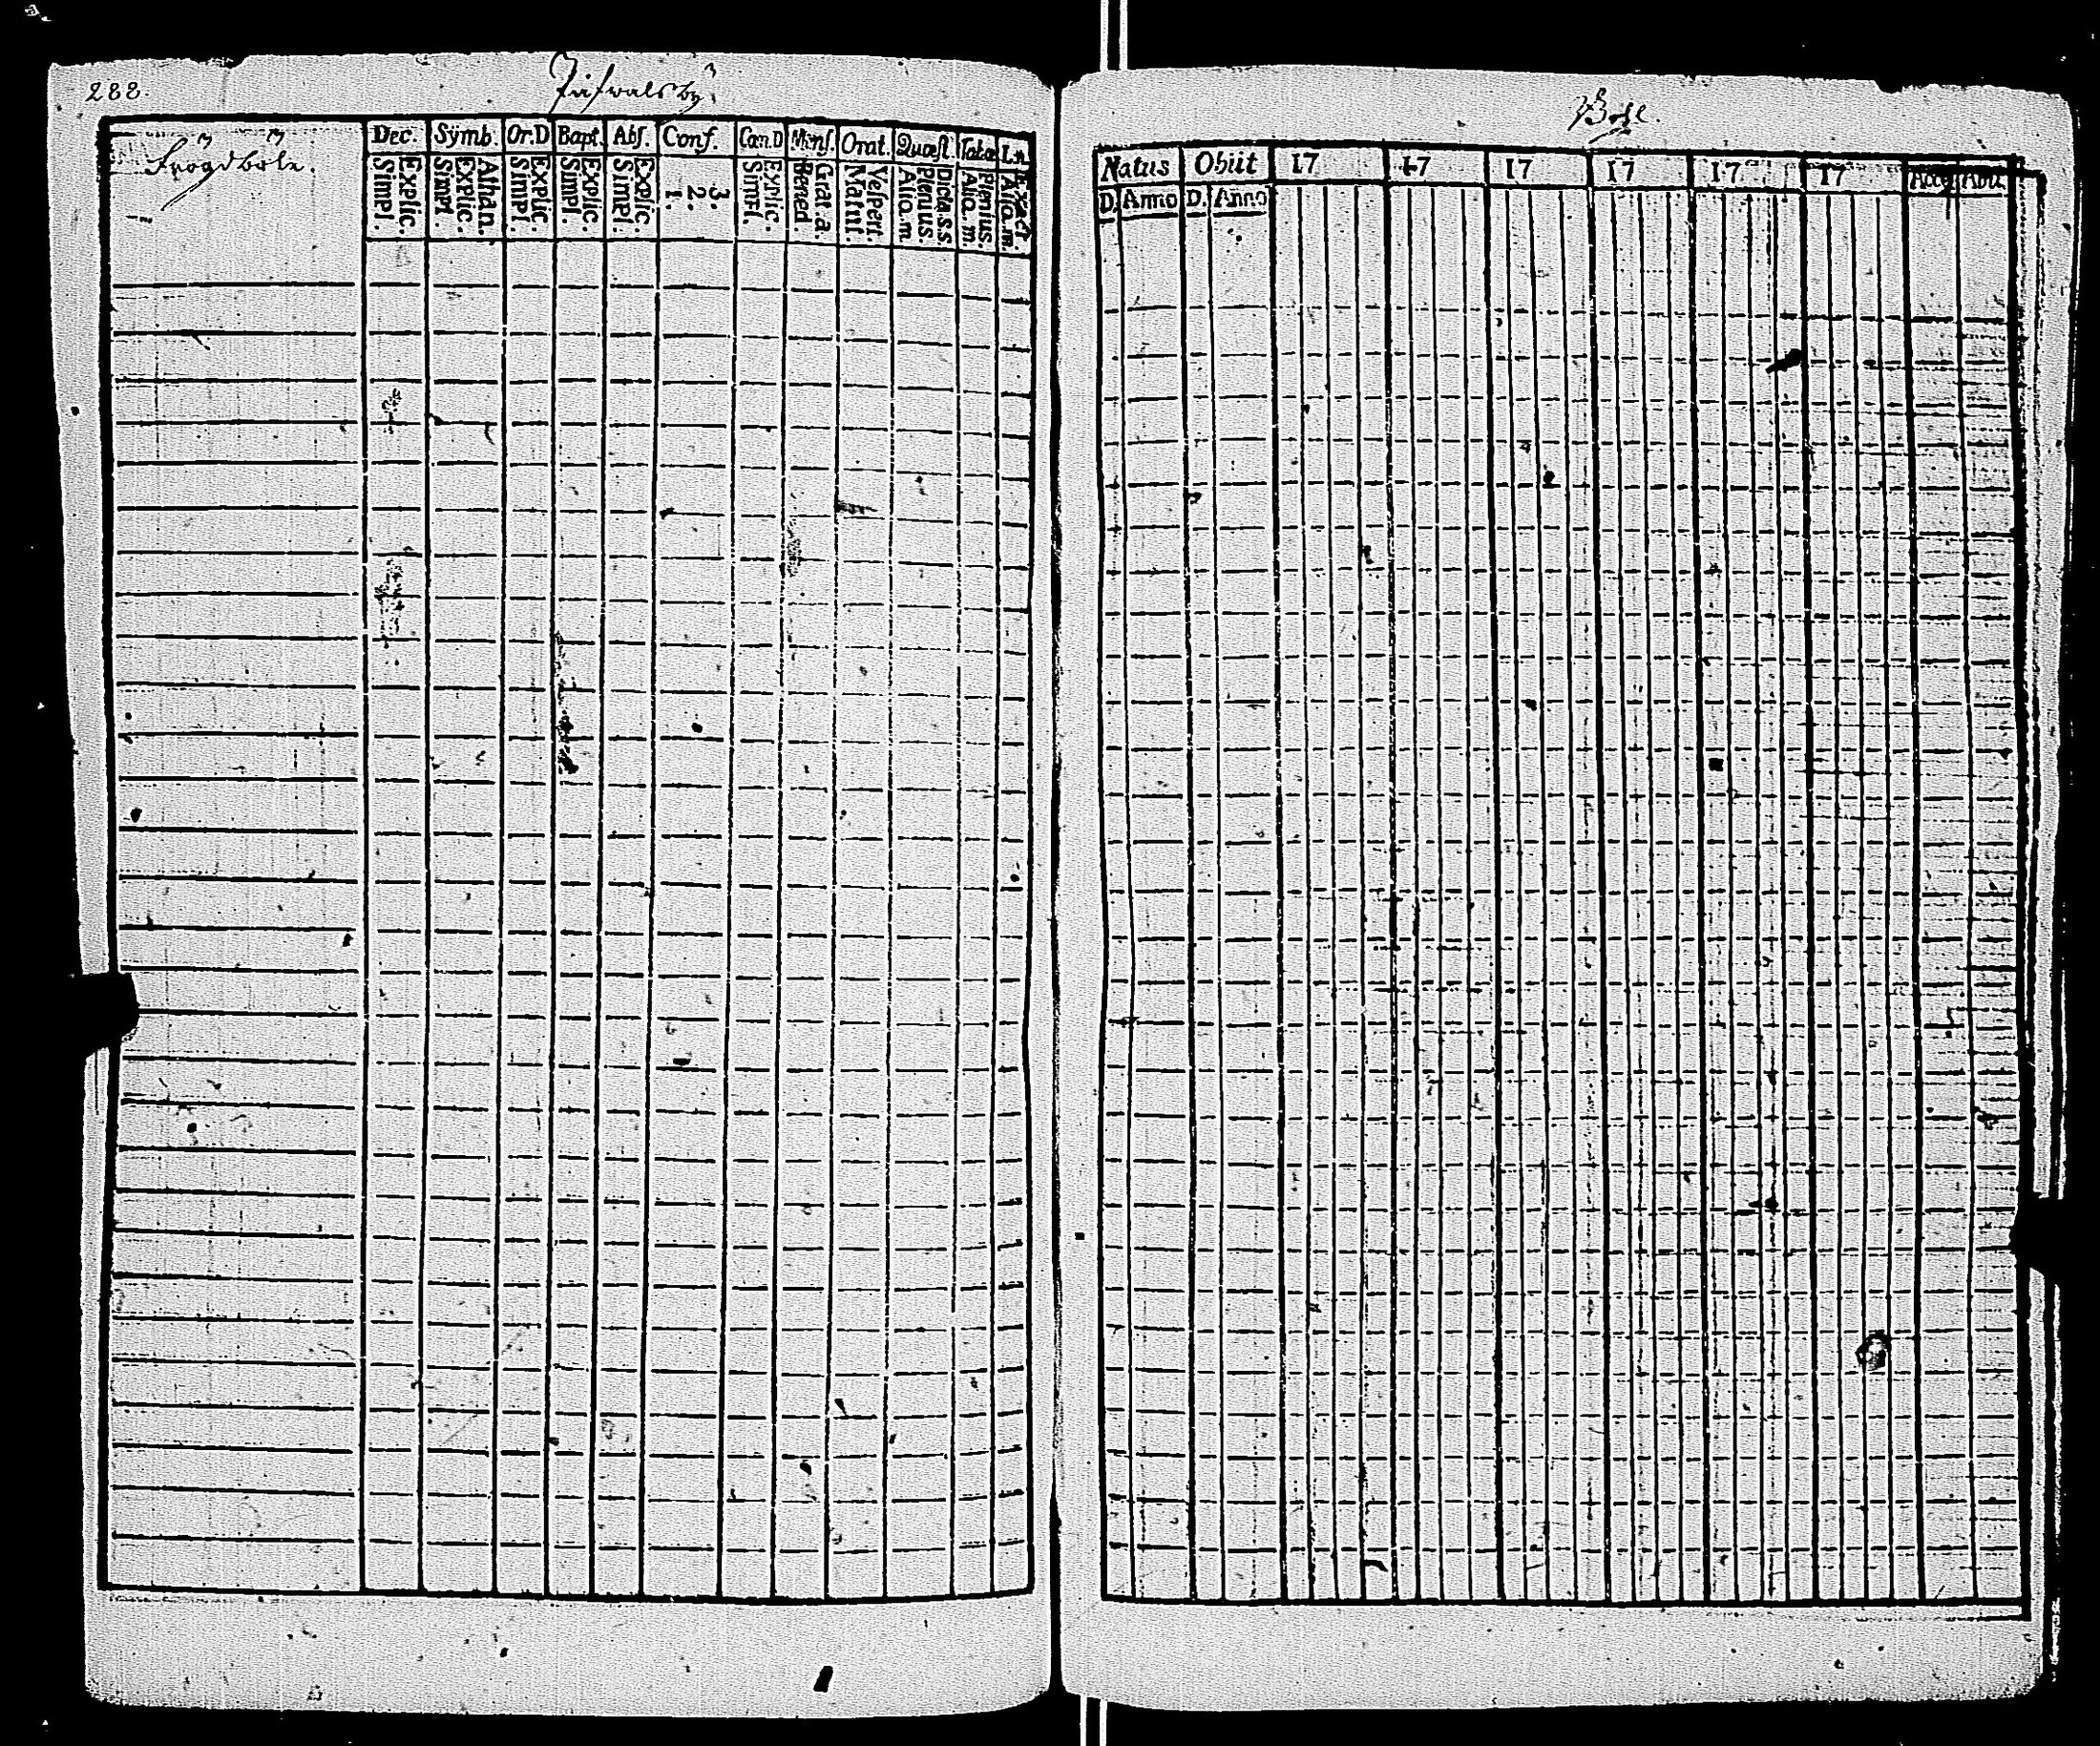 288.
Frögdböle.
Dec. Symb. Or.D Bapt. Abs. Conf. Can.D Mens. Orat. Quæst. Tabæ L.n
Explic. Simpl. Athan. Explic. Simpl. Explic. Simpl. Explic. Simpl. Explic. Simpl. 3. 2. 1. Explic. Simpl. Grat. a. Bened. Vespert. Matut. Dicta.s.s. Plenius. Alio.m. Plenius. Alio.m. Exact. Alio.m.
Natus Obiit 17 17 17 17 17 17 Acce. Abit.
D. Anno D. Anno